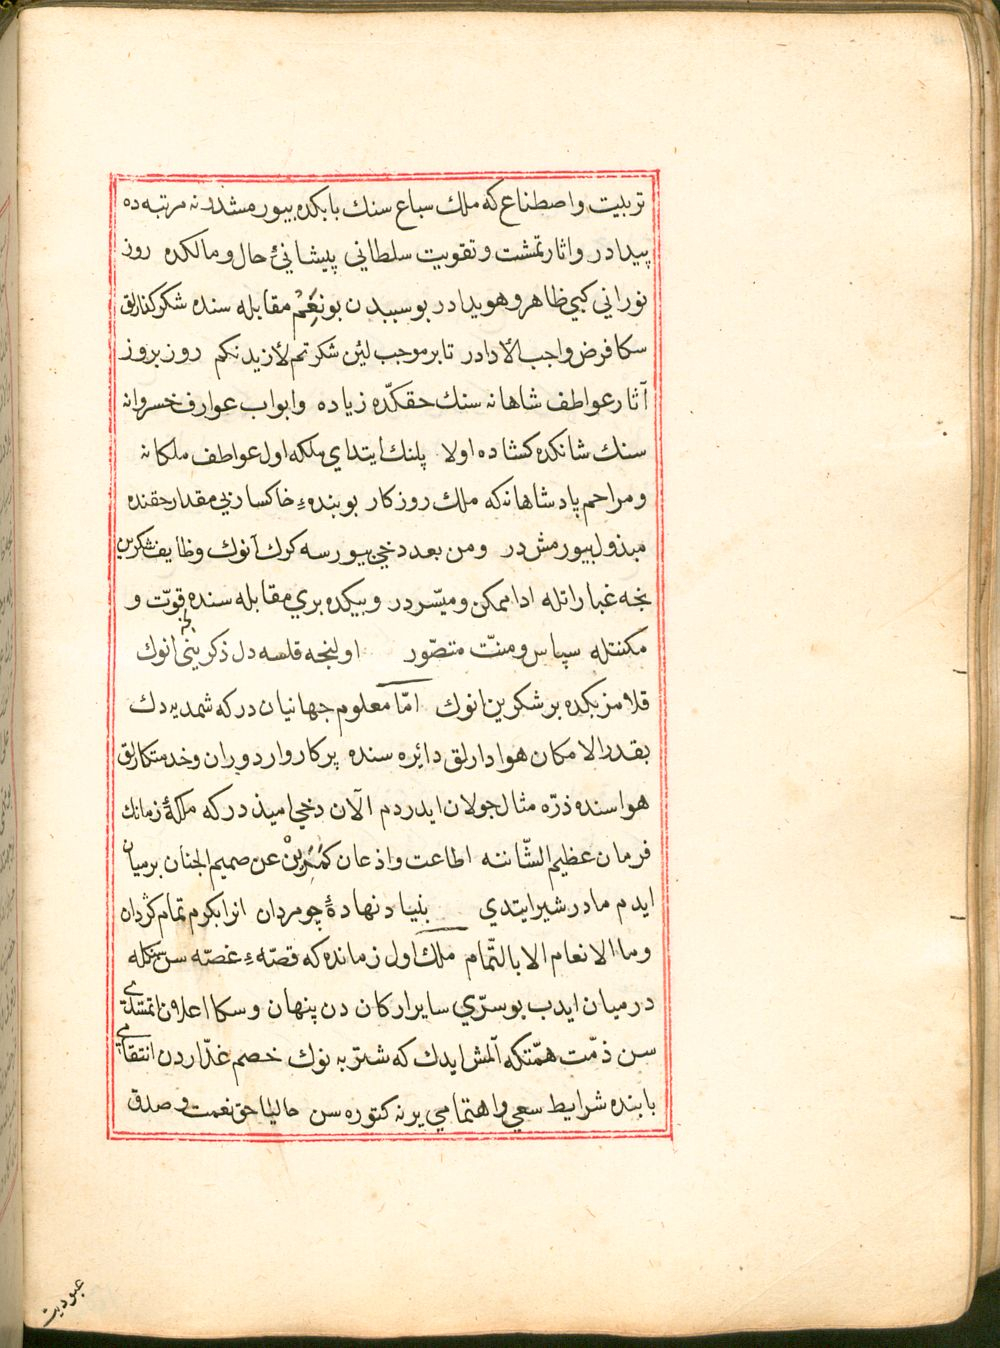 تربيت واصطناع كه ملك سباع سنك بابكده بيورمشدر نه مرتبه ده
پيدادر واثار تمشيت وتقويت سلطاني پيشانئ حال ومالكده روز
نوراني كبي ظاهر وهويدادر بوسببدن بو نعم مقابله سنده شكركذارلق
سكا فرض واجب الأدادر تا برموجب لئن شكرتم لأزيدنكم روز بروز
آثار عواطف شاهانه سنك حقكده زياده وابواب عوارف خسروانه
سنك شانكده كشاده اولا پلنك ايتداي ملكه اول عواطف ملكانه
ومراحم پادشاهانه كه ملك روزكار بو بندهء خاكسار بي مقدار حقنده
مبذول بيورمش در ومن بعد دخي بيورسه كرك آنوك وظايف شكرين
نجه عباراتله ادا ممكن وميسردر وبيكده بري مقابله سنده نه قوّت و
مكنتله سپاس ومنّت متصّور اولنجه قلمه دل ذكريني انوك
قلامز بيكده بر شكرين انوك امّا معلوم جهانيان دركه شمديه دك
بقدر الامكان هوادارلق دائره سنده پركار وار دوران وخدمتكارلق
هواسنده ذرّه مثال جولان ايدردم الآن دخي اميذ دركه ملكۀ زمانك
فرمان عظيم الشّاننه اطاعت واذعان كمرين عن صميم الجنان برميان
ايدم مادر شير ايتدي بنياد نهادۀ چو مردان انرا بكرم تمام كردان
وما الانعام الا بالتّمام ملك اول زمانده كه قصّهء غصّه سن سنكله
درميان ايدب بو سرّي ساير اركان دن پنهان وسكا اعلان اتمشدي
سن ذمّت همّتكه آلمش ايدك كه شنزبه نوك خصم غدّاردن انتقامي
بابنده شرايط سعي واهتمامي يرنه كتوره سن حاليا حق نعمت وصدق
عبوديت